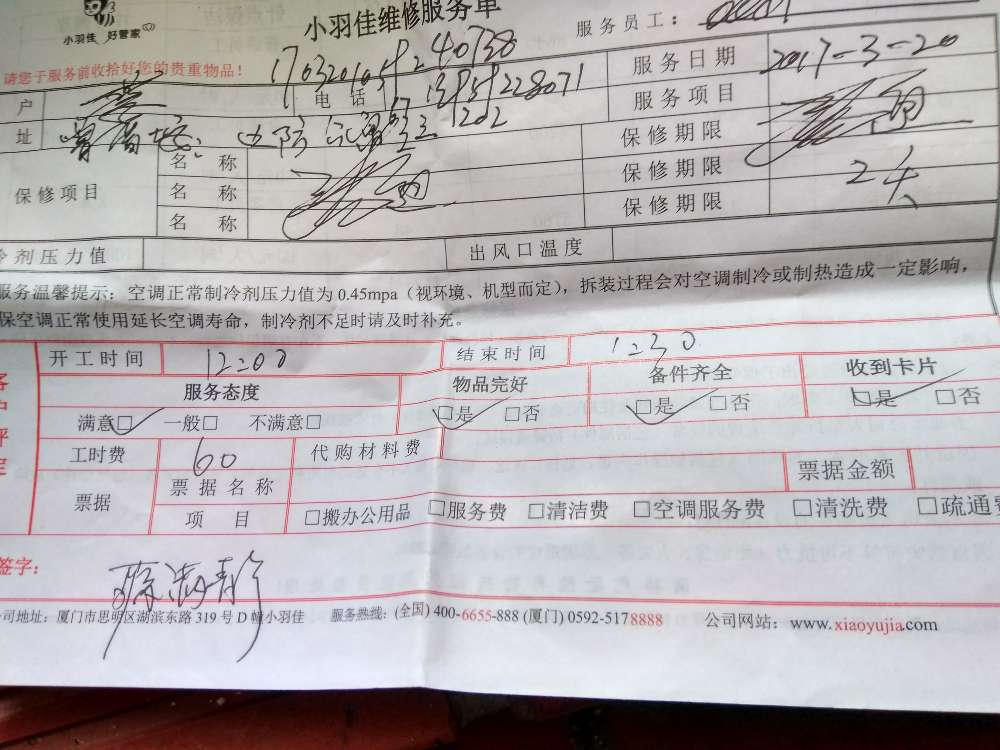 小羽佳 好管家
小羽佳维修服务单
服务员工：
请您于服务前收拾好您的贵重物品！
服务日期 2017-3-20
户 电话
服务项目
址 1202
保修期限
保修项目 名称
名称 保修期限
名称 保修期限 2天
冷剂压力值 出风口温度
服务温馨提示：空调正常制冷剂压力值为0.45mpa（视环境、机型而定），拆装过程会对空调制冷或制热造成一定影响，
保空调正常使用延长空调寿命，制冷剂不足时请及时补充。
开工时间 12:00 结束时间 12:30
服务态度 物品完好 备件齐全 收到卡片
满意□ 一般□ 不满意□ □是 □否 □是 □否 □是 □否
工时费 60 代购材料费
票据 票据名称 票据金额
项目 □搬办公用品 □服务费 □清洁费 □空调服务费 □清洗费 □疏通费
签字：
公司地址：厦门市思明区湖滨东路319号D幢小羽佳 服务热线：(全国) 400-6655-888 (厦门) 0592-5178888 公司网站：www.xiaoyujia.com